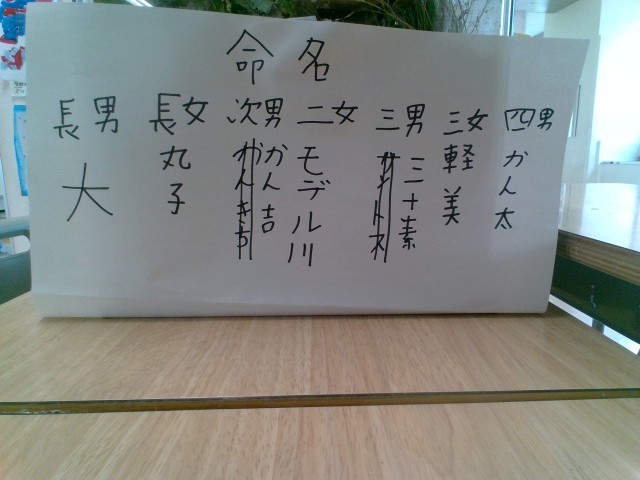 命名
長男 長女 次男 二女 三男 三女 四男
大
丸子
かん吉
かんきち
モデル川
三十素
軽美
かん太